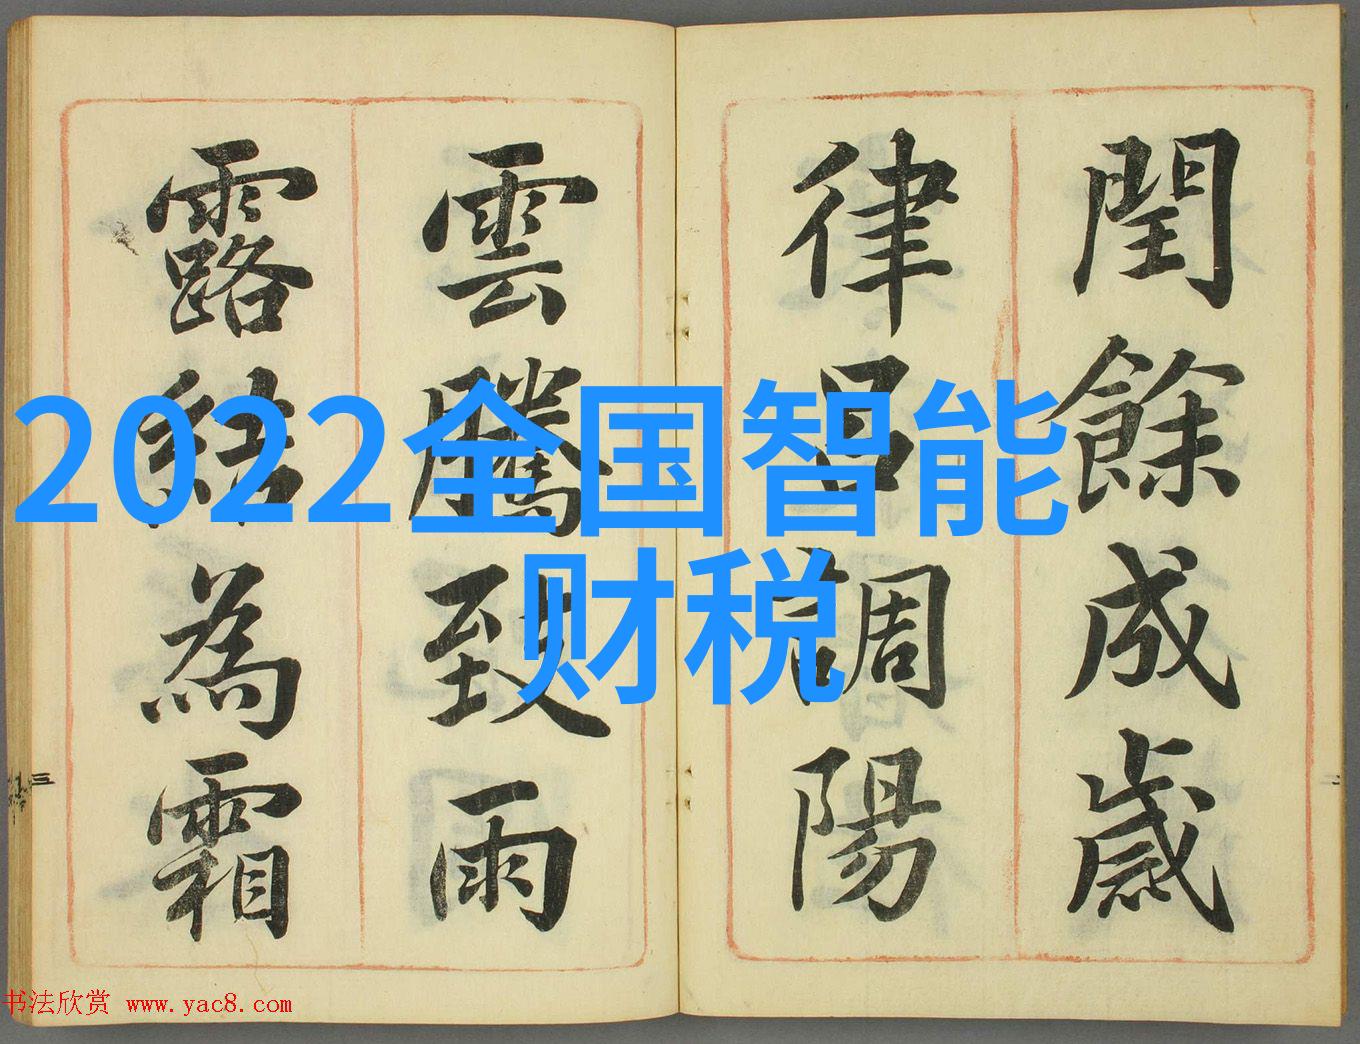 閏餘成歲
律呂調陽
雲騰致雨
露結為霜
2022全国智能
财税
三
二
书法欣赏 www.yac8.com